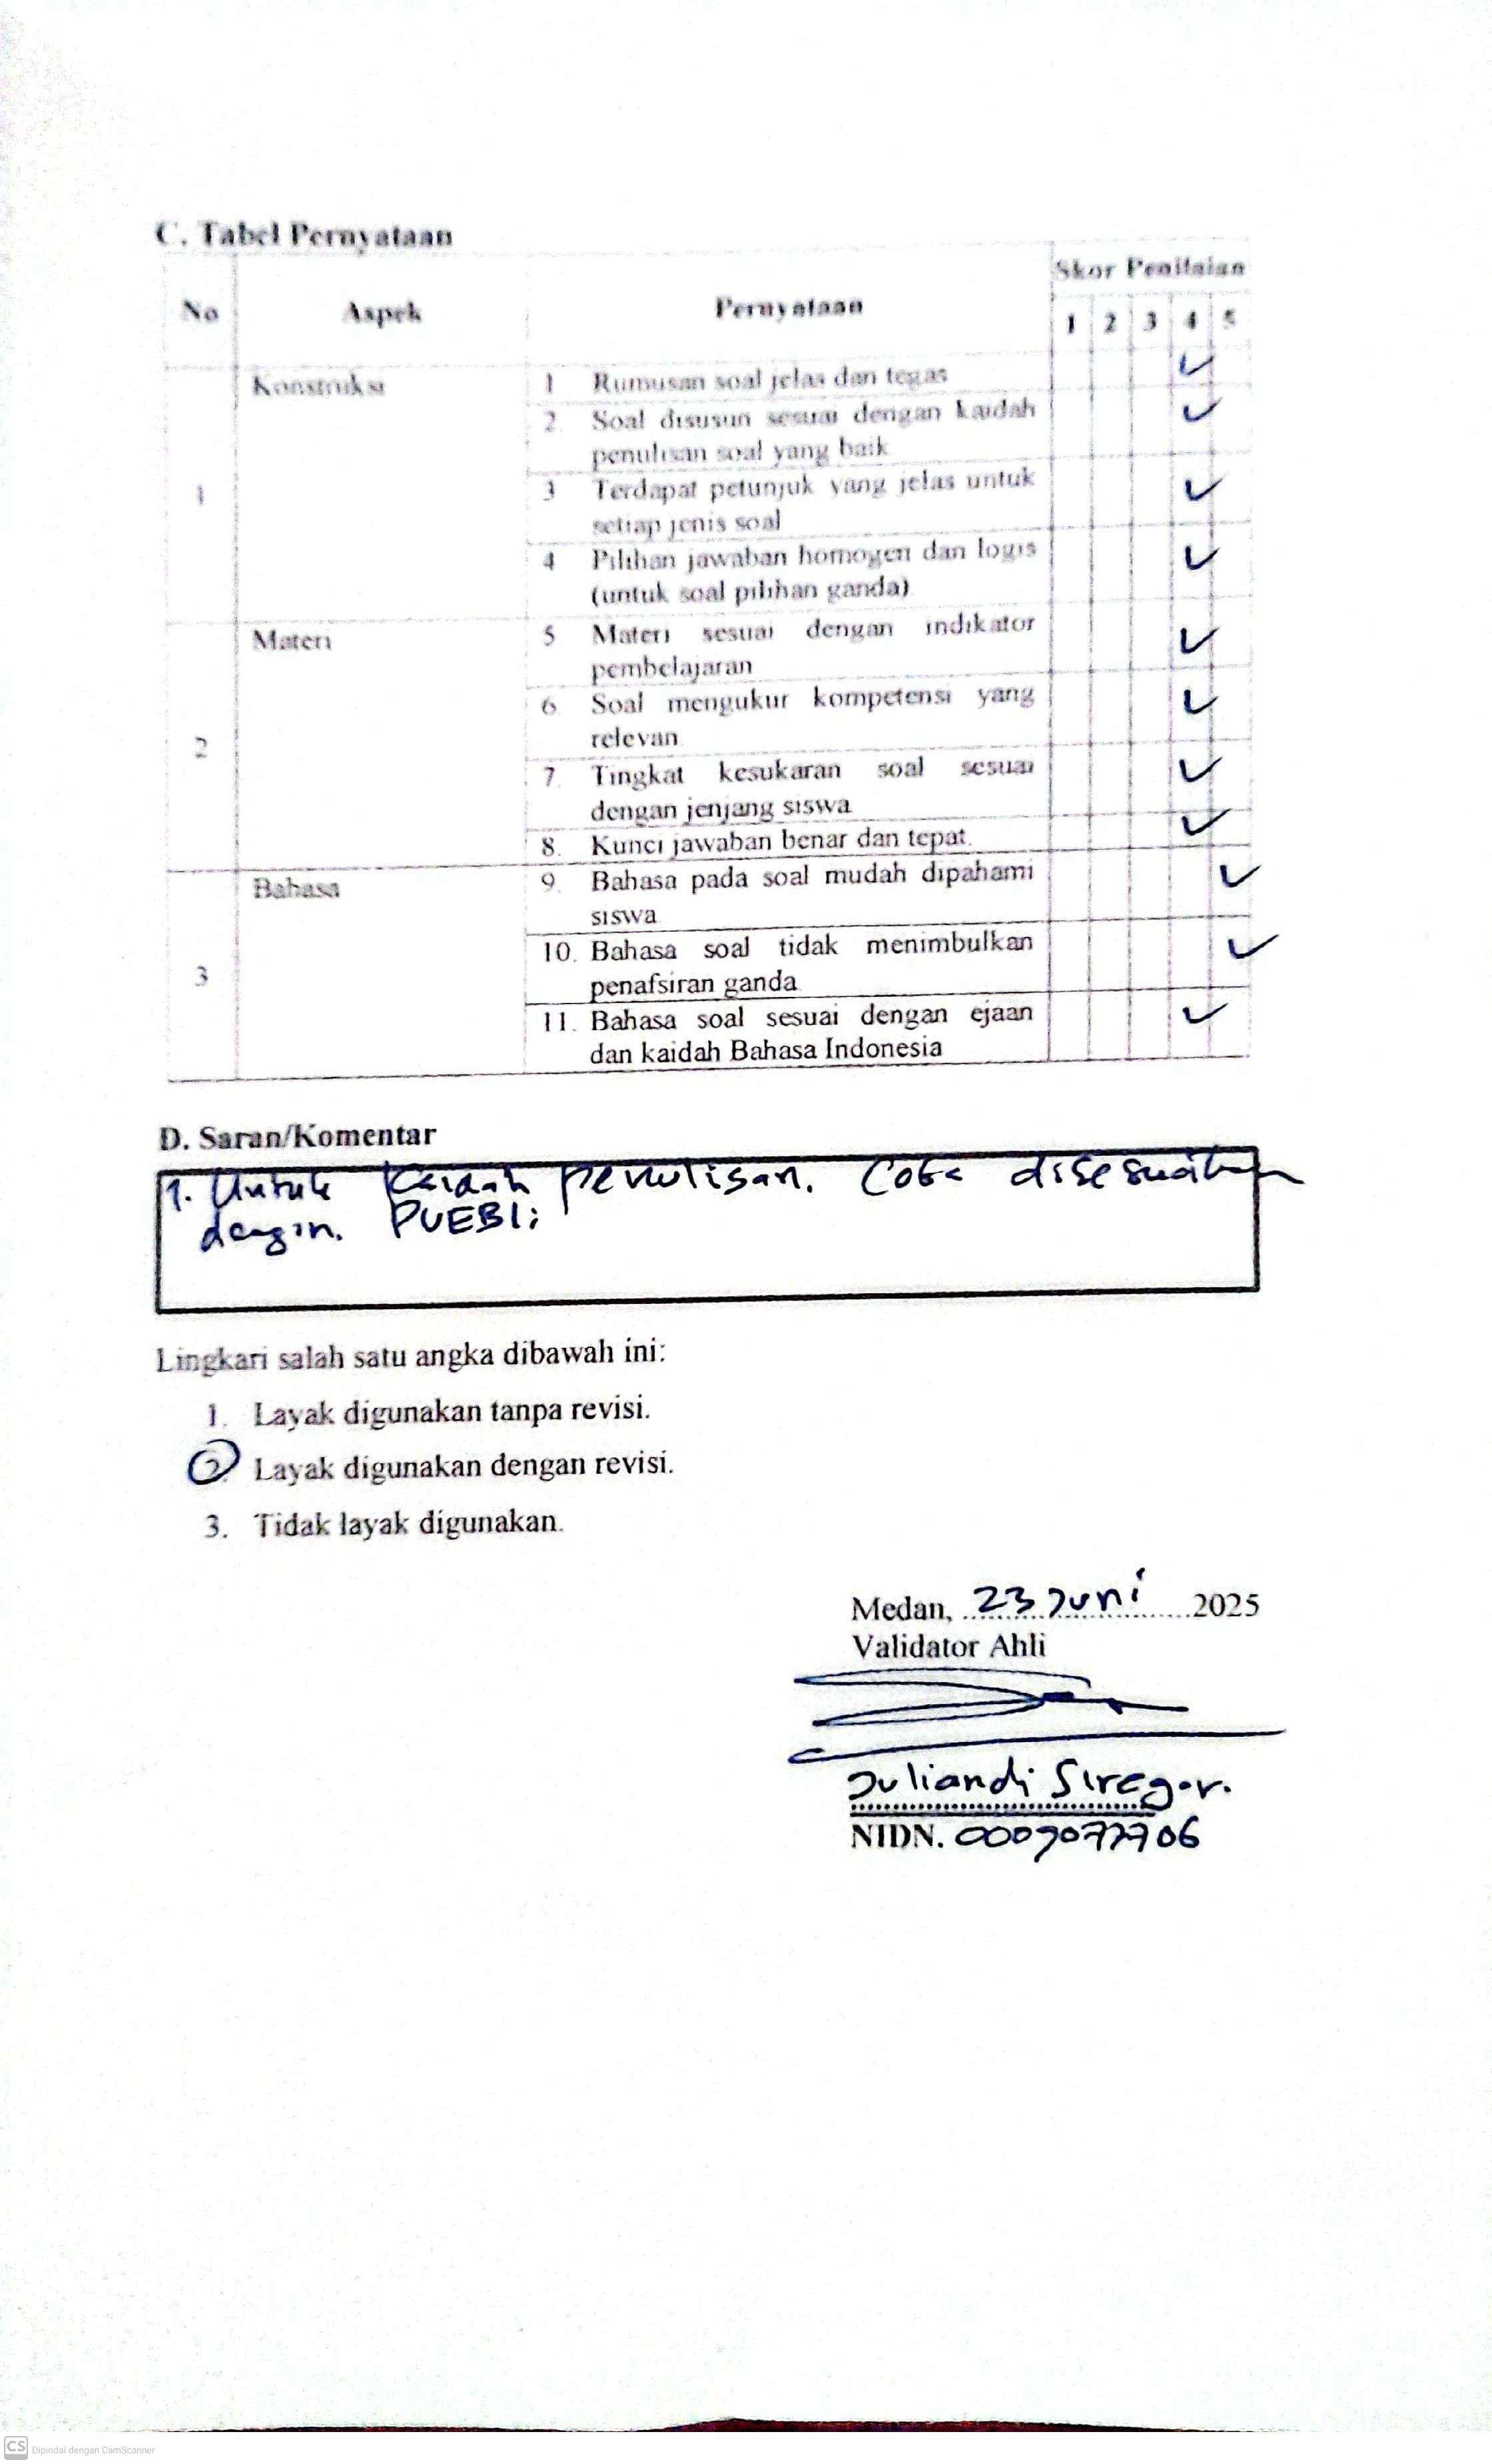 C. Tabel Pernyataan
No Aspek Pernyataan Skor Penilaian
1 2 3 4 5
1 Konstruksi 1 Rumusan soal jelas dan tegas ✓
2. Soal disusun sesuai dengan kaidah
penulisan soal yang baik ✓
3 Terdapat petunjuk yang jelas untuk
setiap jenis soal ✓
4 Pilihan jawaban homogen dan logis
(untuk soal pilihan ganda) ✓
2 Materi 5 Materi sesuai dengan indikator
pembelajaran ✓
6 Soal mengukur kompetensi yang
relevan. ✓
7. Tingkat kesukaran soal sesuai
dengan jenjang siswa ✓
8. Kunci jawaban benar dan tepat. ✓
3 Bahasa 9. Bahasa pada soal mudah dipahami
siswa ✓
10. Bahasa soal tidak menimbulkan
penafsiran ganda ✓
11. Bahasa soal sesuai dengan ejaan
dan kaidah Bahasa Indonesia ✓
D. Saran/Komentar
1. Untuk Kaidah penulisan. Coba disesuaikan
dengan. PUEBI;
Lingkari salah satu angka dibawah ini:
1. Layak digunakan tanpa revisi.
2. Layak digunakan dengan revisi.
3. Tidak layak digunakan.
Medan, 23 Juni 2025
Validator Ahli
Juliandi Siregar.
NIDN.
CS Dipindai dengan CamScanner